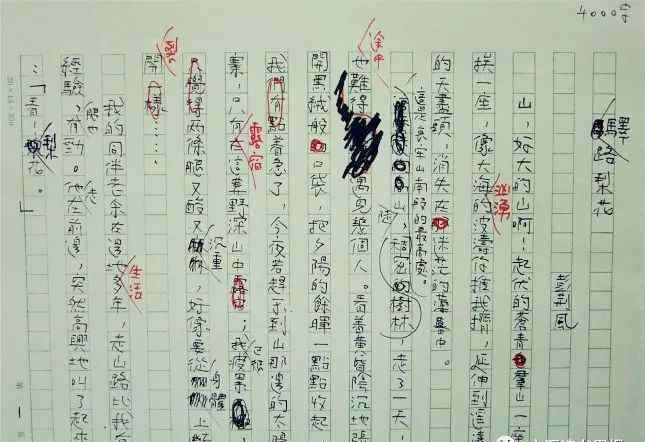 4000字
驛路梨花
彭荆風
山,好大的山啊!起伏的蒼青群山一座
挨一座,像大海的洶湧波濤你推我擠,延伸到遙遠
的天盡頭,消失在迷茫的中。
這是哀牢山南段的最高處。
山,稠密的樹林,走了一天,
途中
也難得遇見幾個人。看着黃昏陰沉地
開黑絨般口袋,把夕陽的餘暉一點點收起
我們有點着急了,今夜若趕不到山那邊的太陽
寨,只有在這荒野深山中露宿;我疲累
覺得兩條腿又酸又沉重,好像要從身體上
開一樣……
我的同伴老余在邊地生活多年,走山路比我有
經驗,有勁。他走在前邊,突然高興地叫了起來
:「看,梨花。」